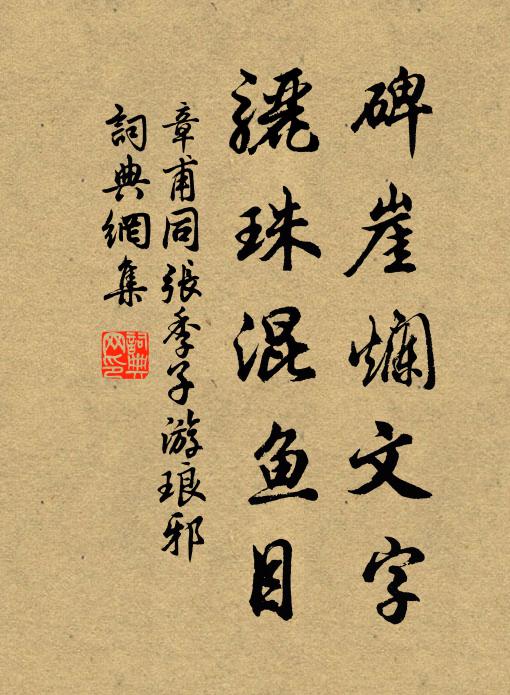 碑崖爛文字
驪珠混魚目
章甫同張季子游琅邪
詞典網集
詞典网印